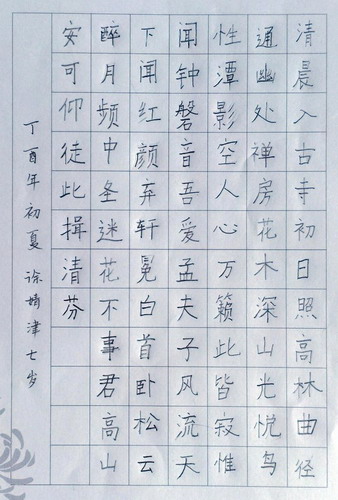 清晨入古寺初日照高林曲径
通幽处禅房花木深山光悦鸟
性潭影空人心万籁此皆寂惟
闻钟磐音吾爱孟夫子风流天
下闻红颜弃轩冕白首卧松云
醉月频中圣迷花不事君高山
安可仰徒此揖清芬
丁酉年初夏 徐婧津七岁